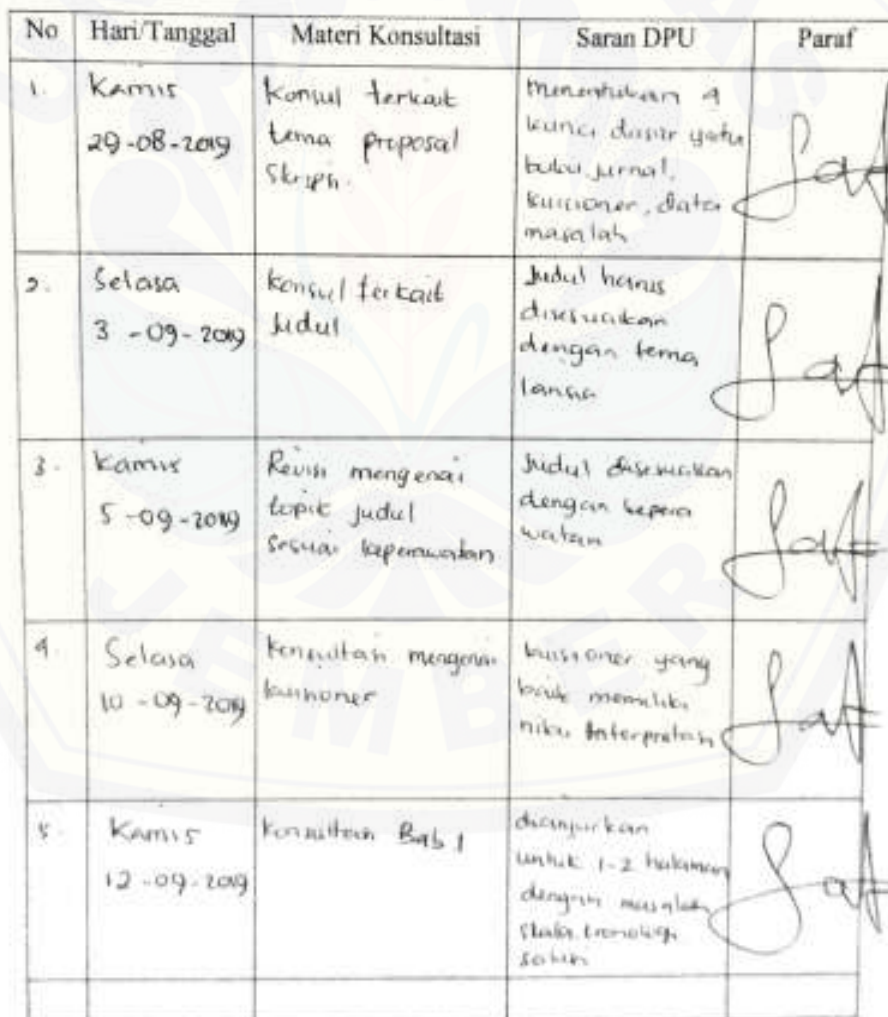 No Hari/Tanggal Materi Konsultasi Saran DPU Paraf
1. Kamis
29-08-2019
Konsul terkait
tema proposal
Skripsi.
menentukan 4
kunci dasar yaitu
buku, jurnal,
kuisioner, data
masalah
2. Selasa
3 -09- 2019
Konsul terkait
Judul
Judul harus
disesuaikan
dengan tema
lansia
3. Kamis
5 -09- 2019
Revisi mengenai
topik judul
sesuai keperawatan
Judul disesuaikan
dengan kepera
watan
4. Selasa
10 -09- 2019
Konsultasi mengenai
kuisioner
kuisioner yang
baik memiliki
nilai Interpretasi
5. Kamis
12 -09- 2019
Konsultasi Bab 1
dianjurkan
untuk 1-2 halaman
dengan masalah
skala
JEMBER